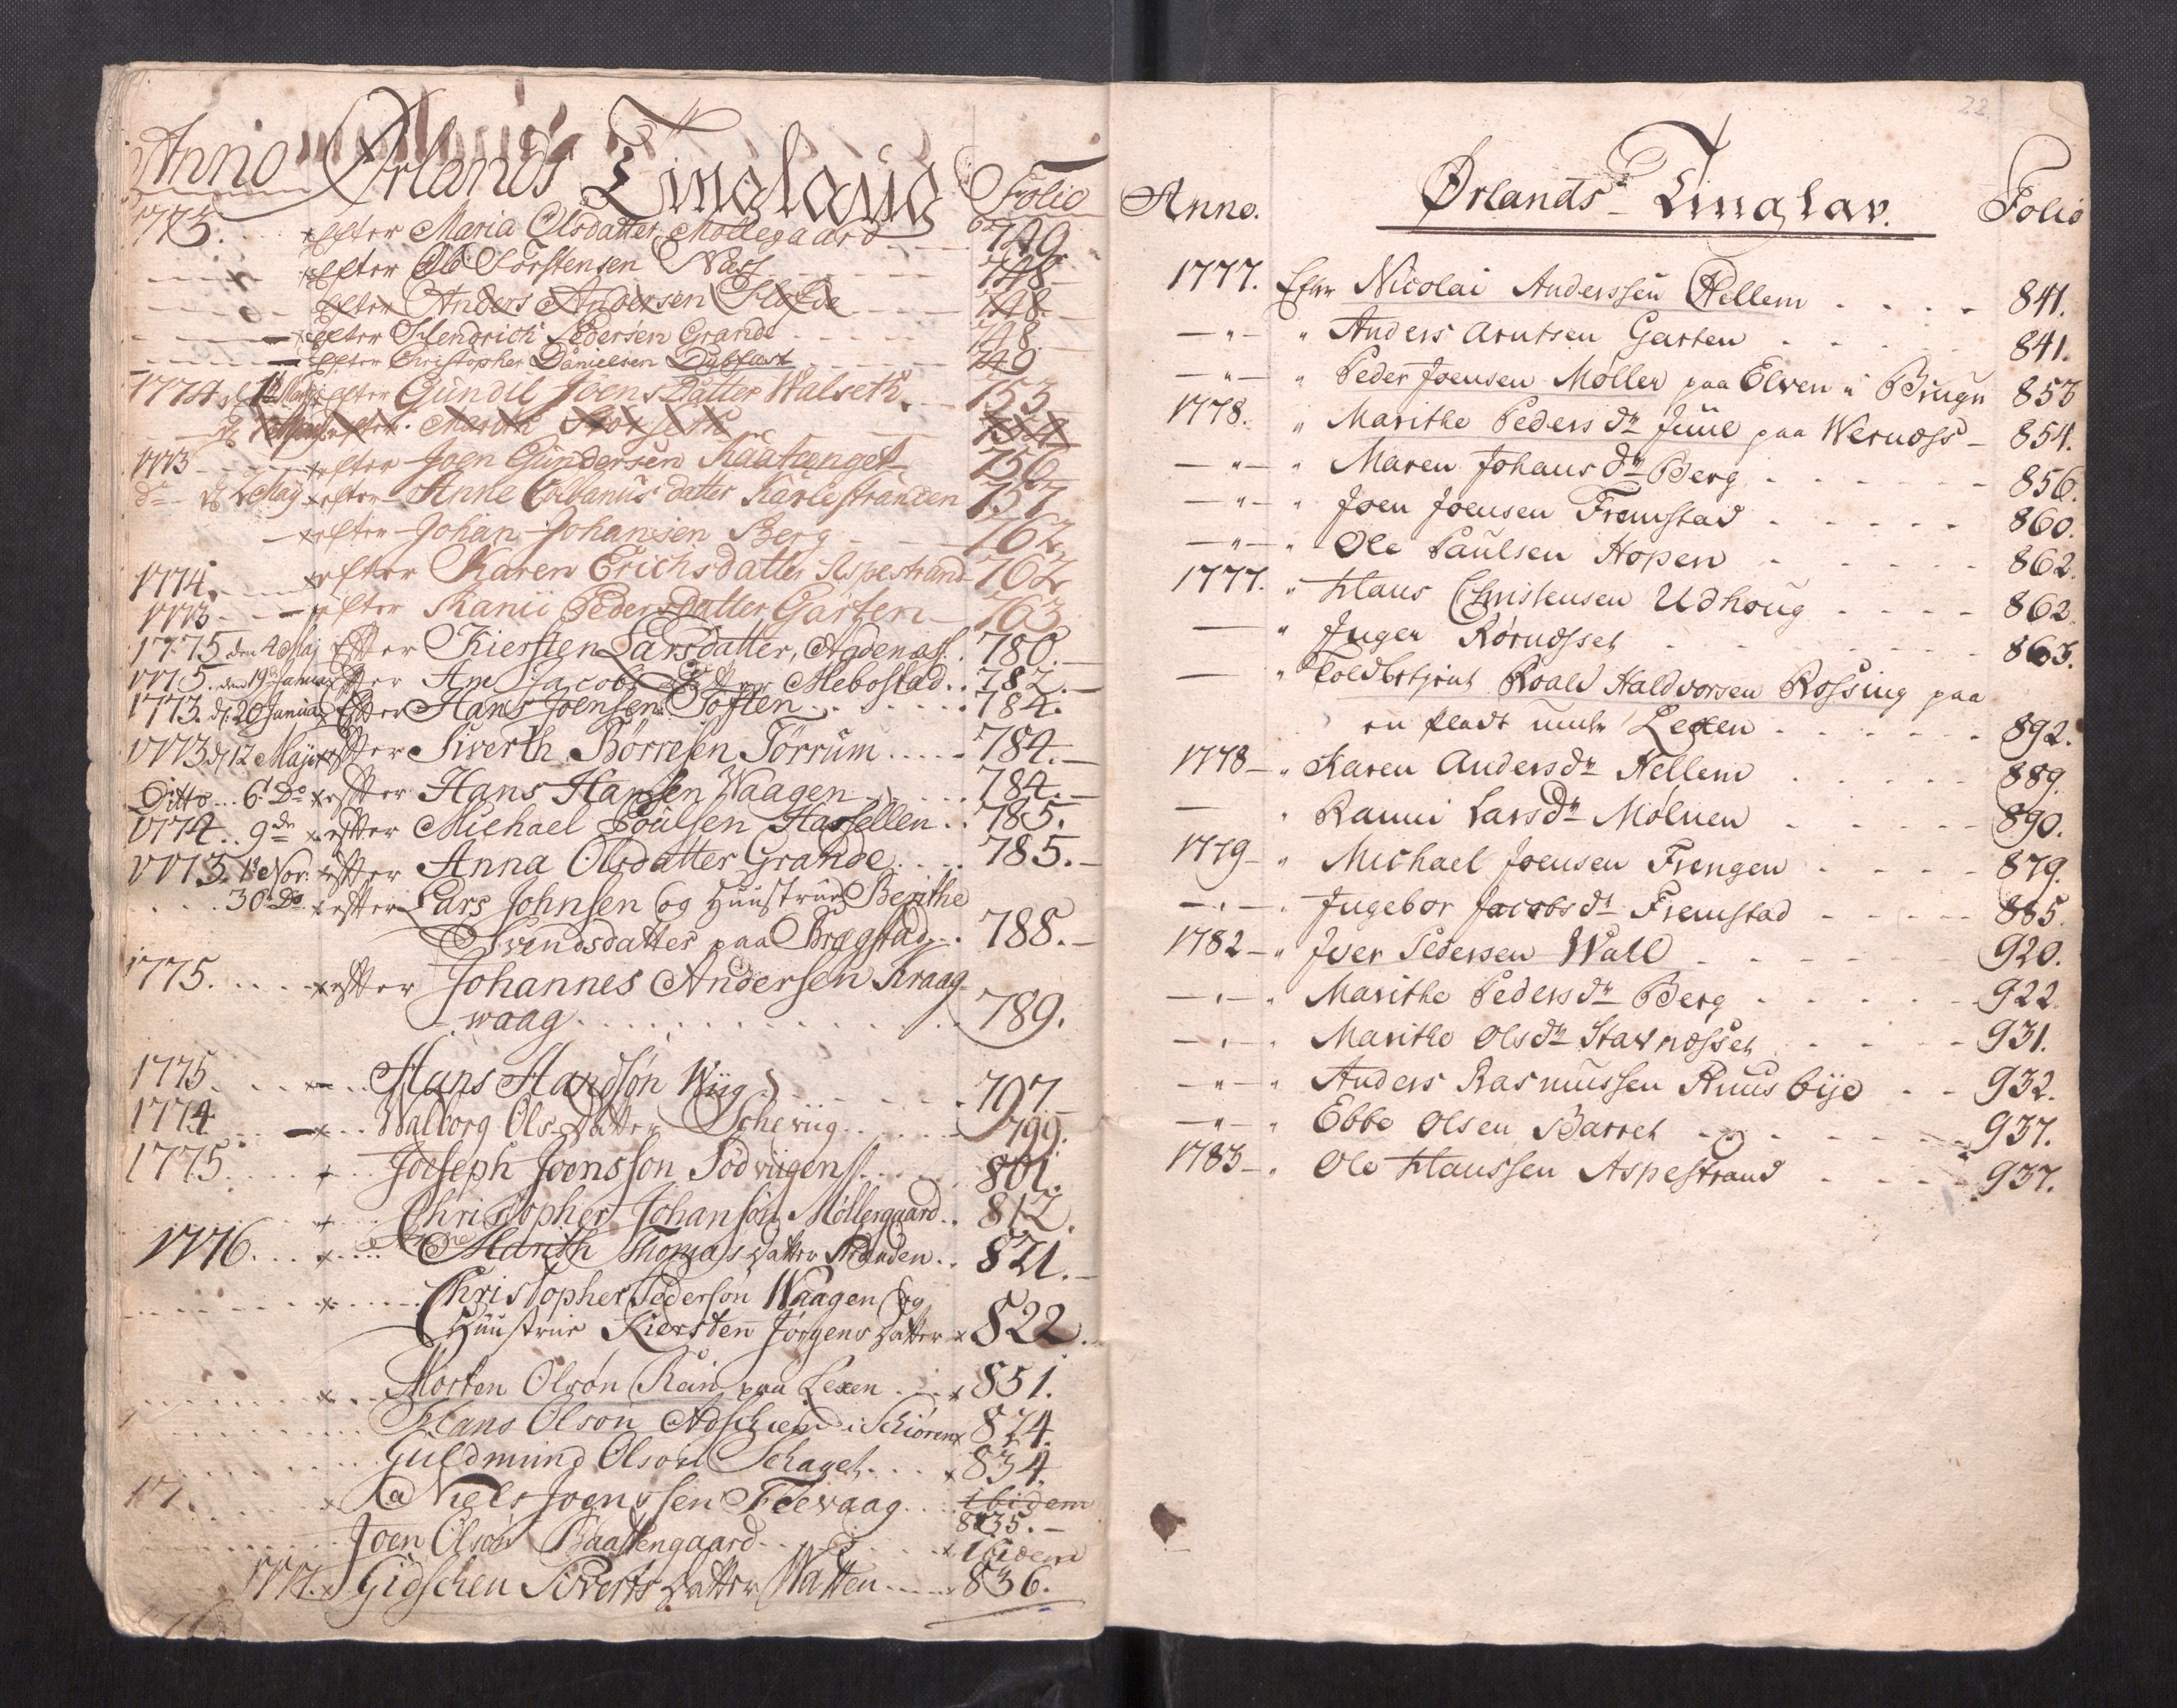 Anno Ørlands Tinglaug Folio
1773. Efter Maria Olsdatter Mollegaard 749
Efter Ole Torstensen Næss 748
Efter Anders Andersen 748
Efter Hendrich Pedersen Grande 748
Efter Christopher Danielsen 749
1774 efter Gundil Joens Datter Walseth 753
efter Marith 754
1773 efter Joen Gundersen Raatænget 756
do May efter Anne Urbanus datter Karlestranden 757
efter Johan Johansen Berg 762
1774. efter Karen Erichsdatter Aspestrand 762
1773 efter Ranii Pedersdatter Garten 763
1775 den 4 Maj Efter Kiersten Larsdatter, Agdenæs. 780.
1775. den 19de Januar Efter Ane Jacobs datter Mebostad. 782.
1773. d. 20 Januar Efter Hans Joensen Toften 784.
1773 d. 12 Maji efter Siverth Börresen Törrum 784.
Ditto 6. Do efter Hans Hansen Waagen 784.
1774. 9de efter Michael Poulsen Hassellen 785.
1773. 1 Nov: efter Anna Olsdatter Grande 785.
30 Do efter Lars Johnsen og Huustrue Berithe
Svendsdatter paa Brægstad 788.
1775. efter Johannes Andersen Kraag
waag 789.
1775. Hans Handsön Wiig 797
1774 Walborg Ols datter Scheviig 799.
1775. Joeseph Joensson Sodviigen 801.
Christopher Johanson Møllergaard 812.
1776. Marith Thomas datter Stranden 821.
Christopher Pedersön Waagen og
Huustrue Kiersten Jörgens datter 822.
Morten Olsön Rein paa Lexen 851.
Hans Olsön i Schiören 824.
Guldmund Olsön Schaget 834.
17 Niels Joenssen Feevaag ibidem
835.
Joen Olsön Baattengaard ibidem
1777. Gidschen Siverts datter Watten 836.
22
Anno. Ørlands Tinglav. Folio
1777. Efter Nicolai Anderssen Hellem 841.
— " — " Anders Arntsen Garten 841.
— " — " Peder Joensen Møller paa Elven i Brugn 853
1778. " Marithe Peders dr Juul paa Wernæss 854.
— " — " Maren Johans dr Berg 856.
— " — " Joen Joensen Fremstad 860.
— " — " Ole Paulsen Hopen 862.
1777. " Hans Christensen Udhoug 862.
— " Inger Rørnæsset 863.
— " Toldbetjent Roald Haldvorsen Rossing paa
en Plads under Lexen 892.
1778 — " Karen Anders dr Hellem 889.
— " Ranni Lars dr Mølnen 890.
1779 — " Michael Joensen Frengen 879.
— " — " Ingebor Jacobs dr Fremstad 885.
1782 — " Iver Pedersen Wall 920.
— " — " Marithe Peders dr Berg 922.
— " — " Marithe Ols dr Stavnæsset 931.
— " — " Anders Rasmussen Ruusbye 932.
— " — " Ebbe Olsen Barret 937.
1783 — " Ole Hanssen Aspestrand 937.